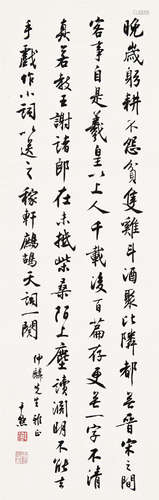 晚歲躬耕不怨貧隻雞斗酒聚比隣都無晉宋之間
事自是羲皇以上人千載後百篇存更無一字不清
真若教王謝諸郎在未抵柴桑陌上塵讀淵明不能去
手戲作小詞以送之稼軒鷓鴣天詞一闋
仲麟先生雅正
尹默